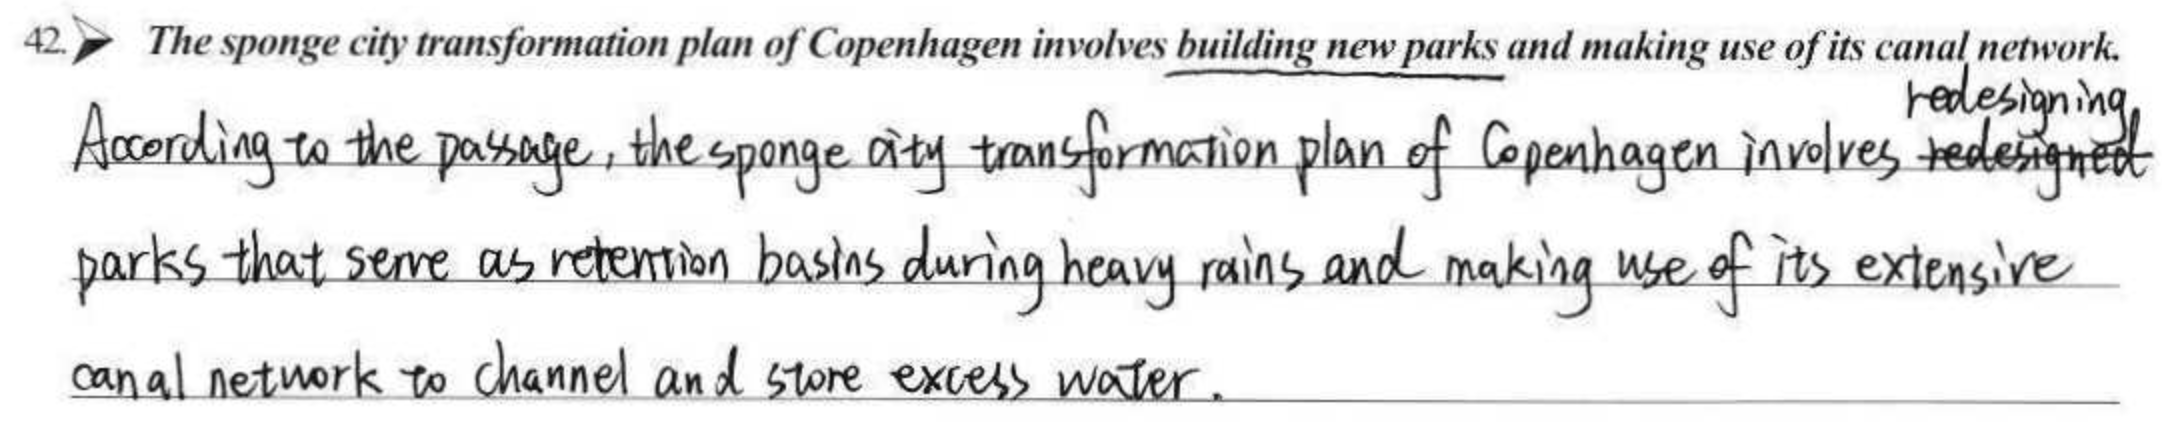 42. ➤ The sponge city transformation plan of Copenhagen involves building new parks and making use of its canal network.
redesigning
According to the passage, the sponge city transformation plan of Copenhagen involves redesigned
parks that serve as retention basins during heavy rains and making use of its extensive
canal network to channel and store excess water.